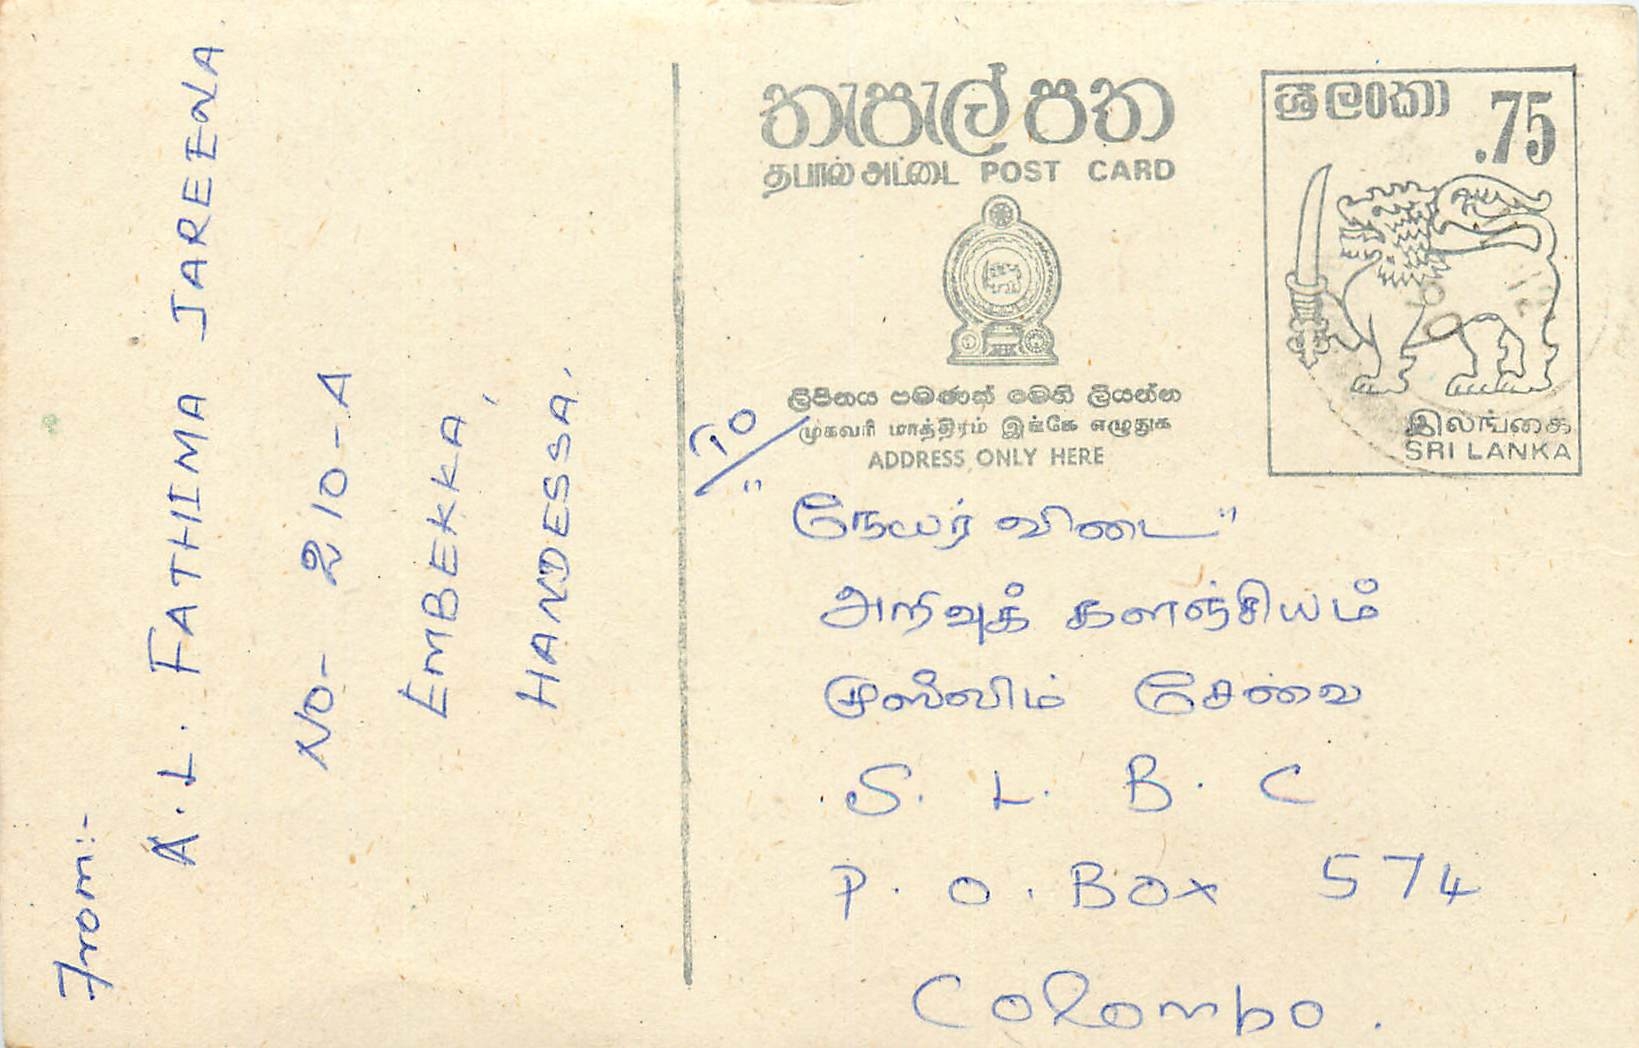 From:-
A. L. FATHIMA JAREENA
NO- 210-A
EMBEKKA,
HANDESSA.
තැපැල් පත
தபால் அட்டை POST CARD
ලිපිනය පමණක් මෙහි ලියන්න
முகவரி மாத்திரம் இங்கே எழுதுக
ADDRESS ONLY HERE
ශ්‍රී ලංකා .75
இலங்கை
SRI LANKA
TO
"நேயர் விடை"
அறிவுக் களஞ்சியம்
முஸ்லிம் சேவை
S. L. B. C
P. O. Box 574
Colombo.